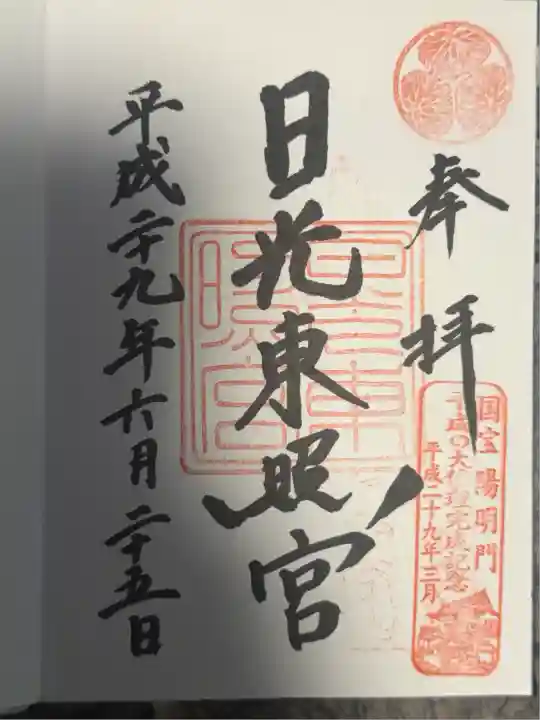 奉拝
国宝 陽明門
平成の大修理完成記念
平成二十九年三月
日光東照宮
平成二十九年六月二十五日